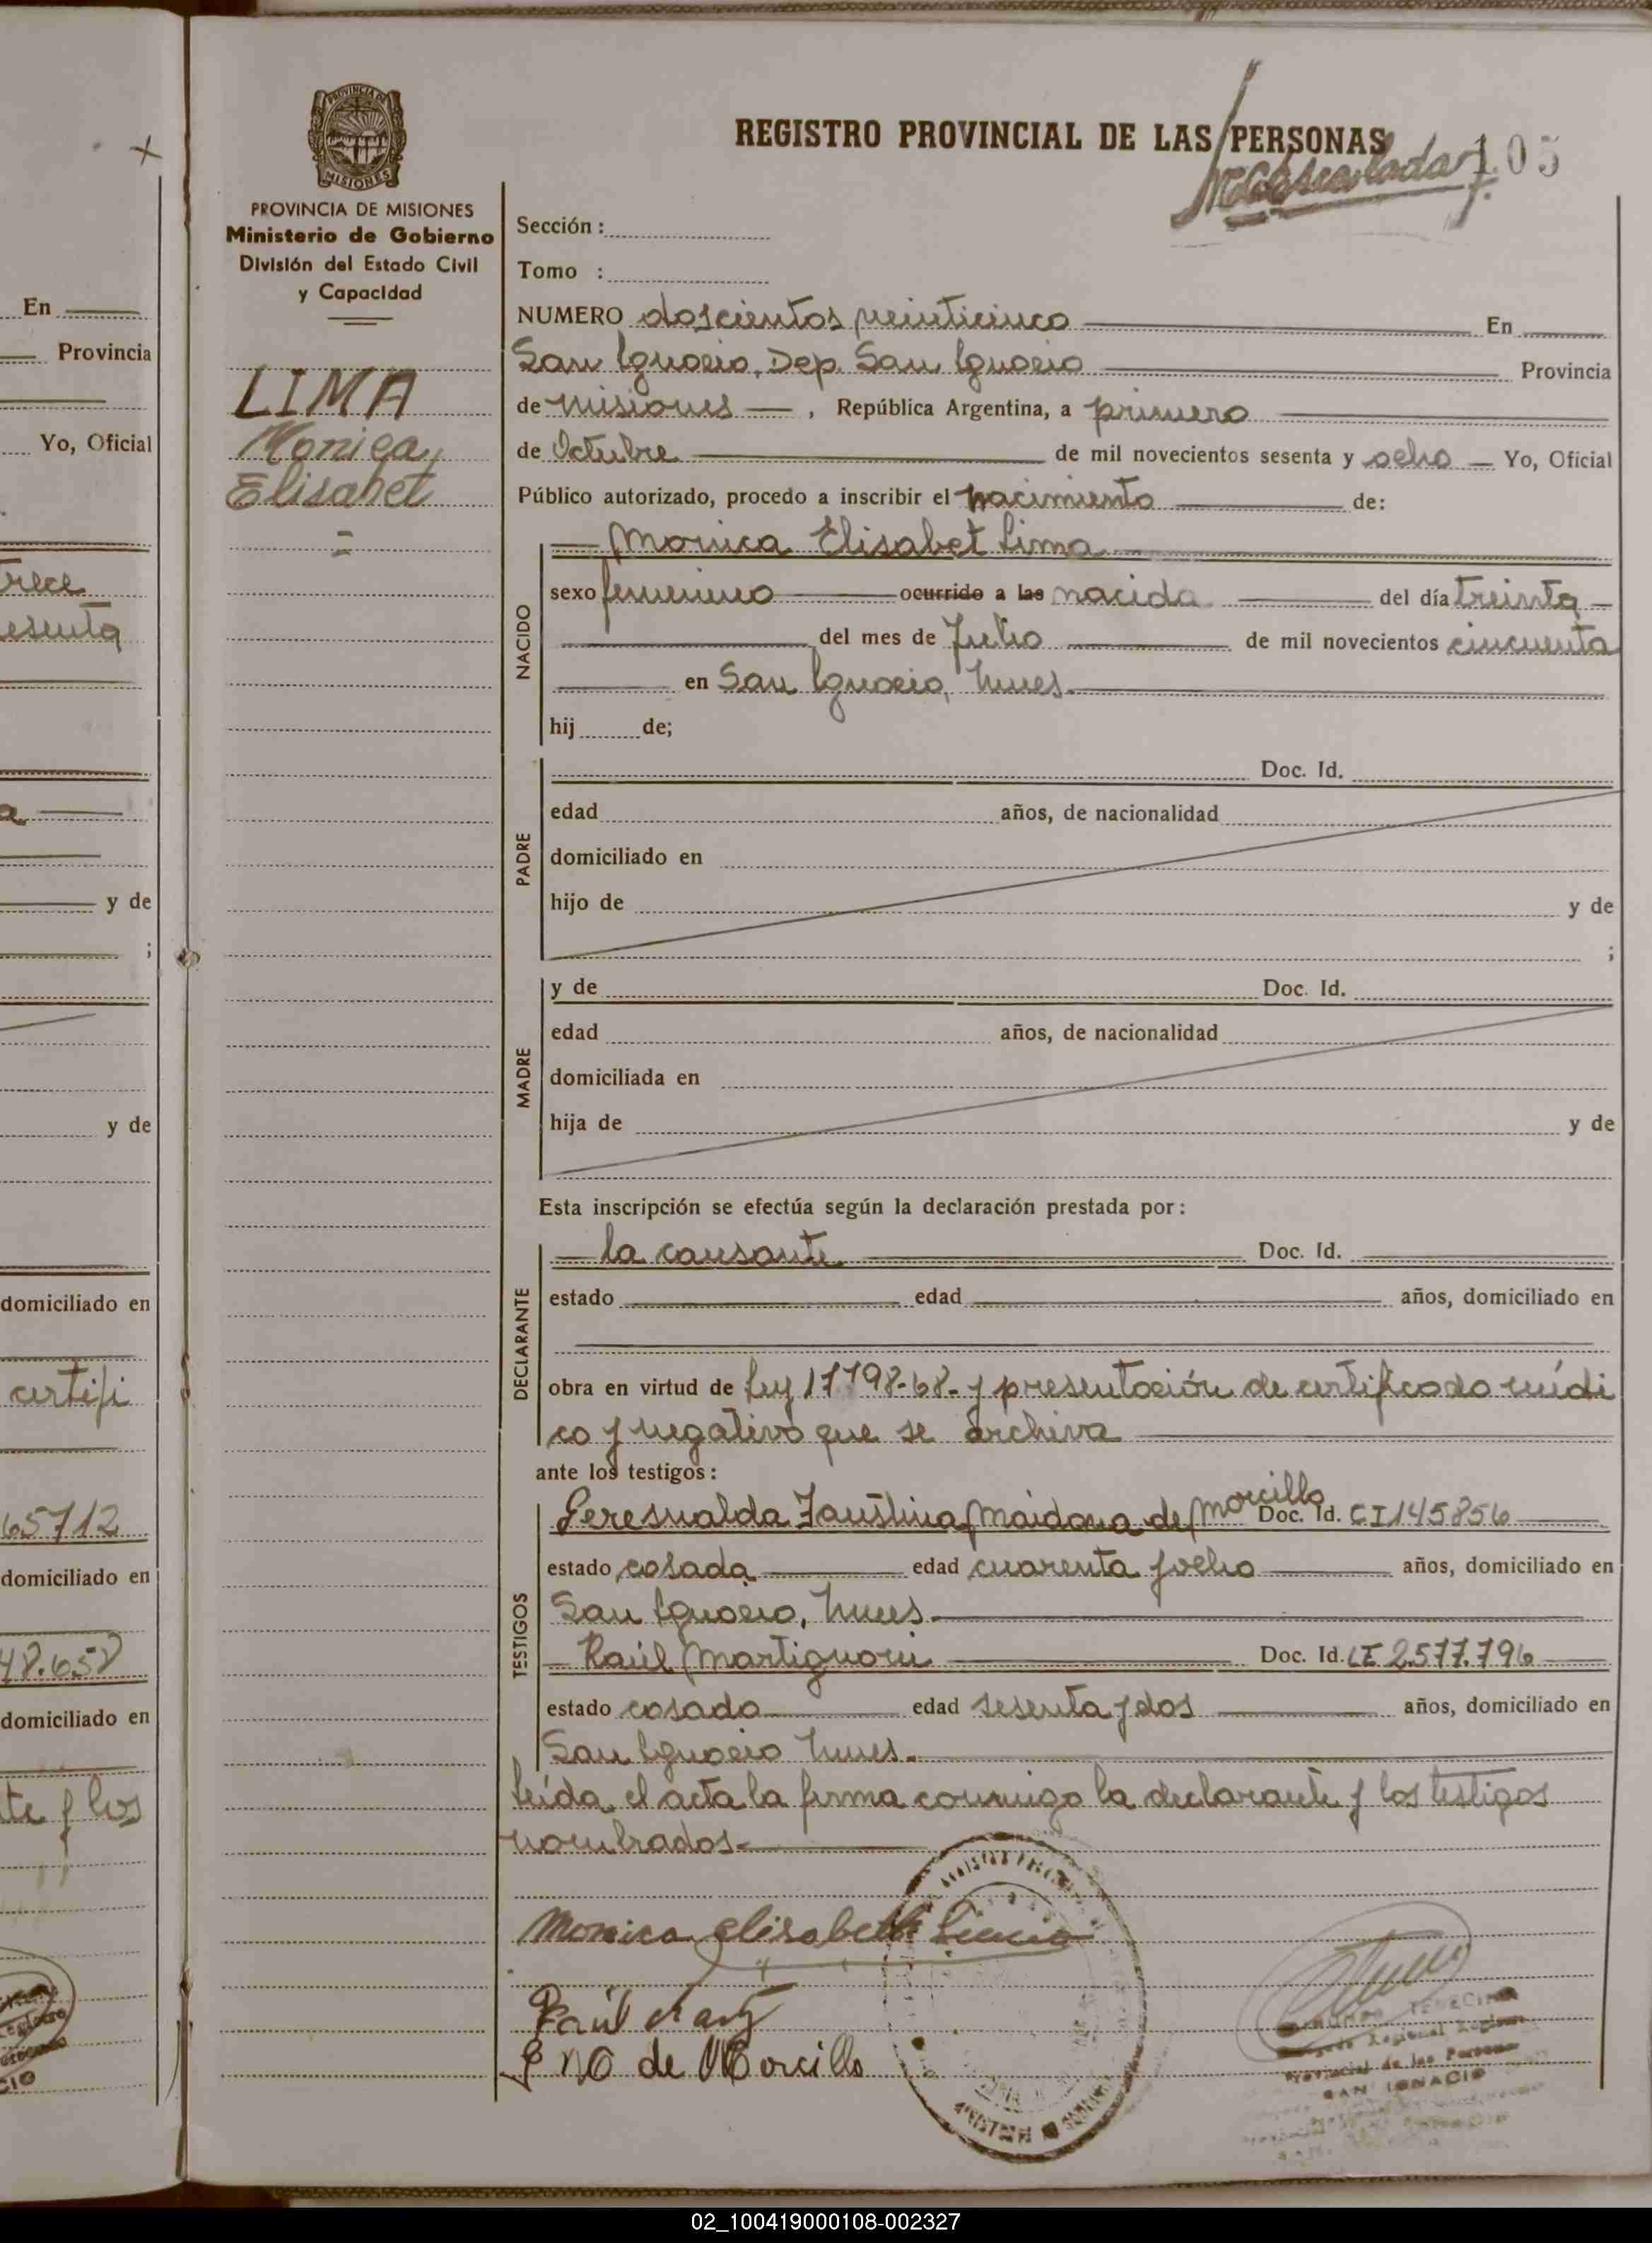 En
Provincia
Yo, Oficial
trece
esenta
a
y de
;
y de
domiciliado en
certifi
65712
domiciliado en
48.658
domiciliado en
te y los
PROVINCIA DE
MISIONES
PROVINCIA DE MISIONES
Ministerio de Gobierno
División del Estado Civil
y Capacidad
LIMA
Monica
Elisabet
REGISTRO PROVINCIAL DE LAS PERSONAS
105
Sección :
Tomo :
NUMERO doscientos veinticinco En
San Ignacio, Dep. San Ignacio Provincia
de Misiones , República Argentina, a primero
de Octubre de mil novecientos sesenta y ocho Yo, Oficial
Público autorizado, procedo a inscribir el nacimiento de:
Monica Elisabet Lima
NACIDO
sexo femenino ocurrido a las nacida del día treinta
del mes de Julio de mil novecientos cincuenta
en San Ignacio, Mnes.
hij de;
PADRE
Doc. Id.
edad años, de nacionalidad
domiciliado en
hijo de y de
;
MADRE
y de Doc. Id.
edad años, de nacionalidad
domiciliada en
hija de y de
Esta inscripción se efectúa según la declaración prestada por:
DECLARANTE
la causante Doc. Id.
estado edad años, domiciliado en
obra en virtud de Ley 17798-68- y presentación de certificado médi
co y negativo que se archiva
ante los testigos:
TESTIGOS
Geresvalda Faustina Maidana de Morcillo Doc. Id. CI 145856
estado casada edad cuarenta y ocho años, domiciliado en
San Ignacio, Mnes.
Raúl Martignoni Doc. Id. LE 2.577.796
estado casado edad sesenta y dos años, domiciliado en
San Ignacio Mnes.
Leída el acta la firma conmigo la declarante y los testigos
nombrados.
Monica elisabeth Lima
Raúl Mart
de Morcillo
Provincial de las Personas
SAN IGNACIO
02_100419000108-002327